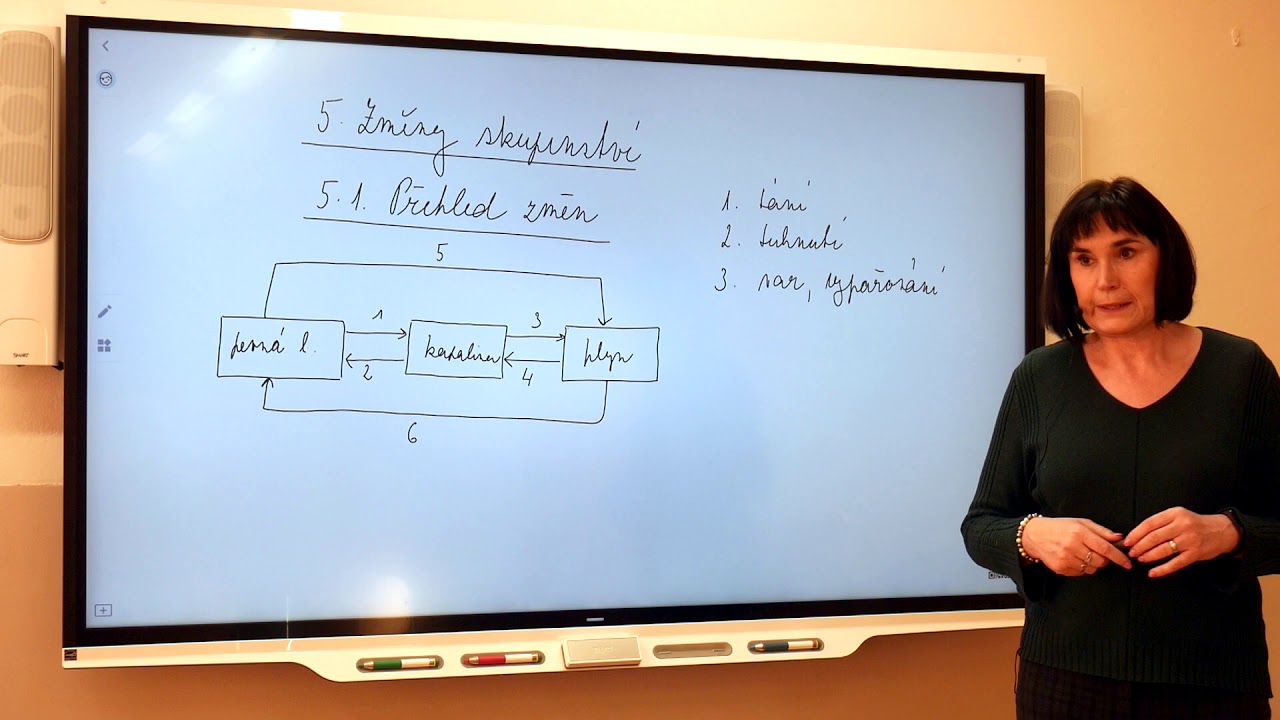 5. Změny skupenství
5.1. Přehled změn
5
pevná l.
1
2
kapalina
3
4
plyn
6
1. tání
2. tuhnutí
3. var, vypařování